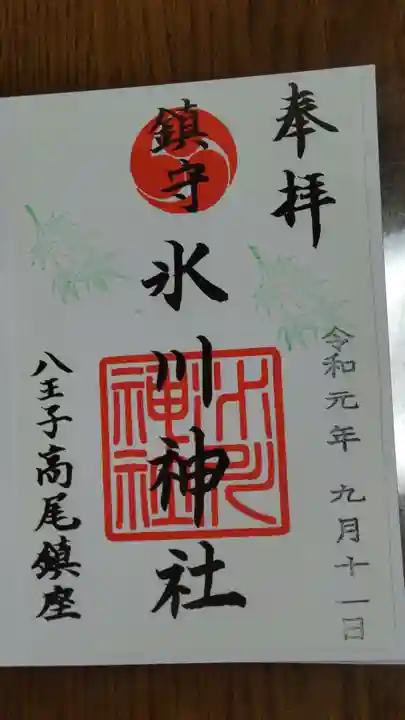 奉拝
令和元年 九月十一日
鎮守 氷川神社
氷川
神社
八王子高尾鎮座